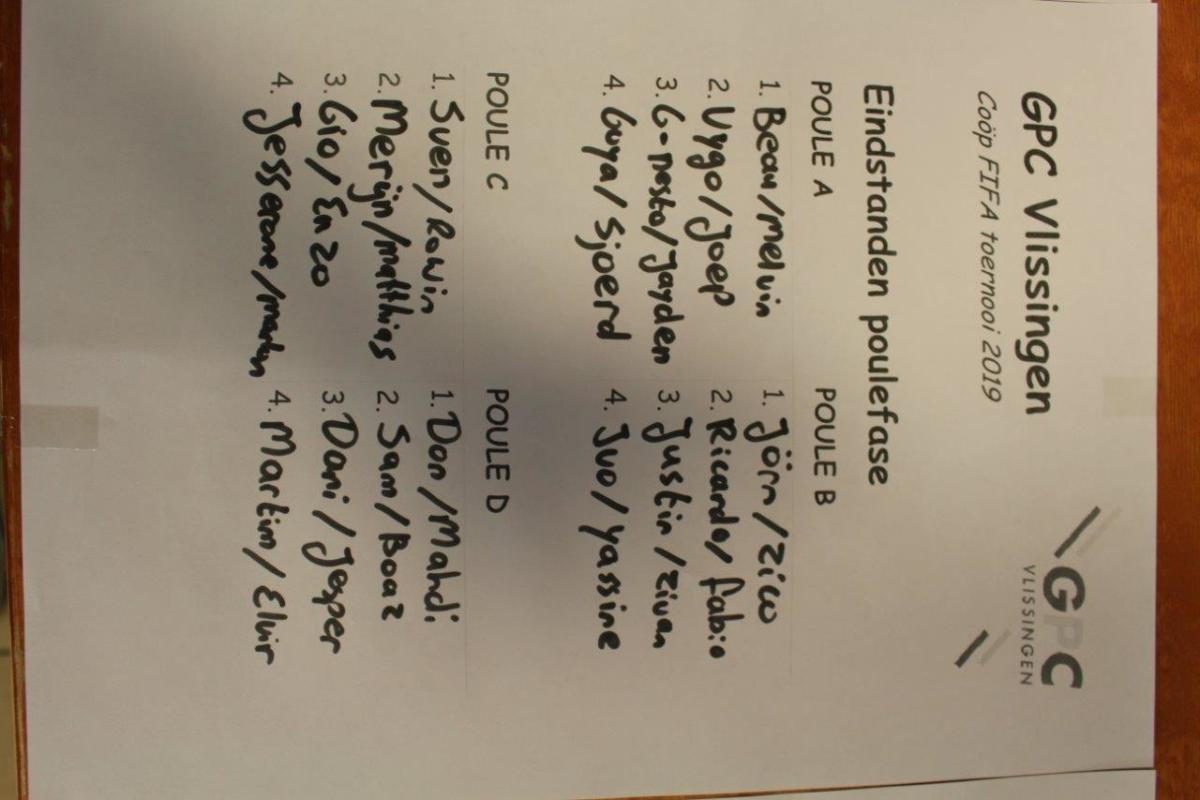 GPC Vlissingen
Coöp FIFA toernooi 2019
GPC
VLISSINGEN
Eindstanden poulefase
POULE A
1. Beau/Melvin
2. Vygo/Joep
3. G-nosto/Jayden
4. Guya/Sjoerd
POULE B
1. Jörn/Zico
2. Ricardo/Fabio
3. Justin/Zivan
4. Juo/Yassine
POULE C
1. Sven/Rowin
2. Merijn/Matthias
3. Gio/Enzo
4. Jesserome/Marten
POULE D
1. Don/Mahdi
2. Sam/Boaz
3. Dani/Jesper
4. Martim/Elvir